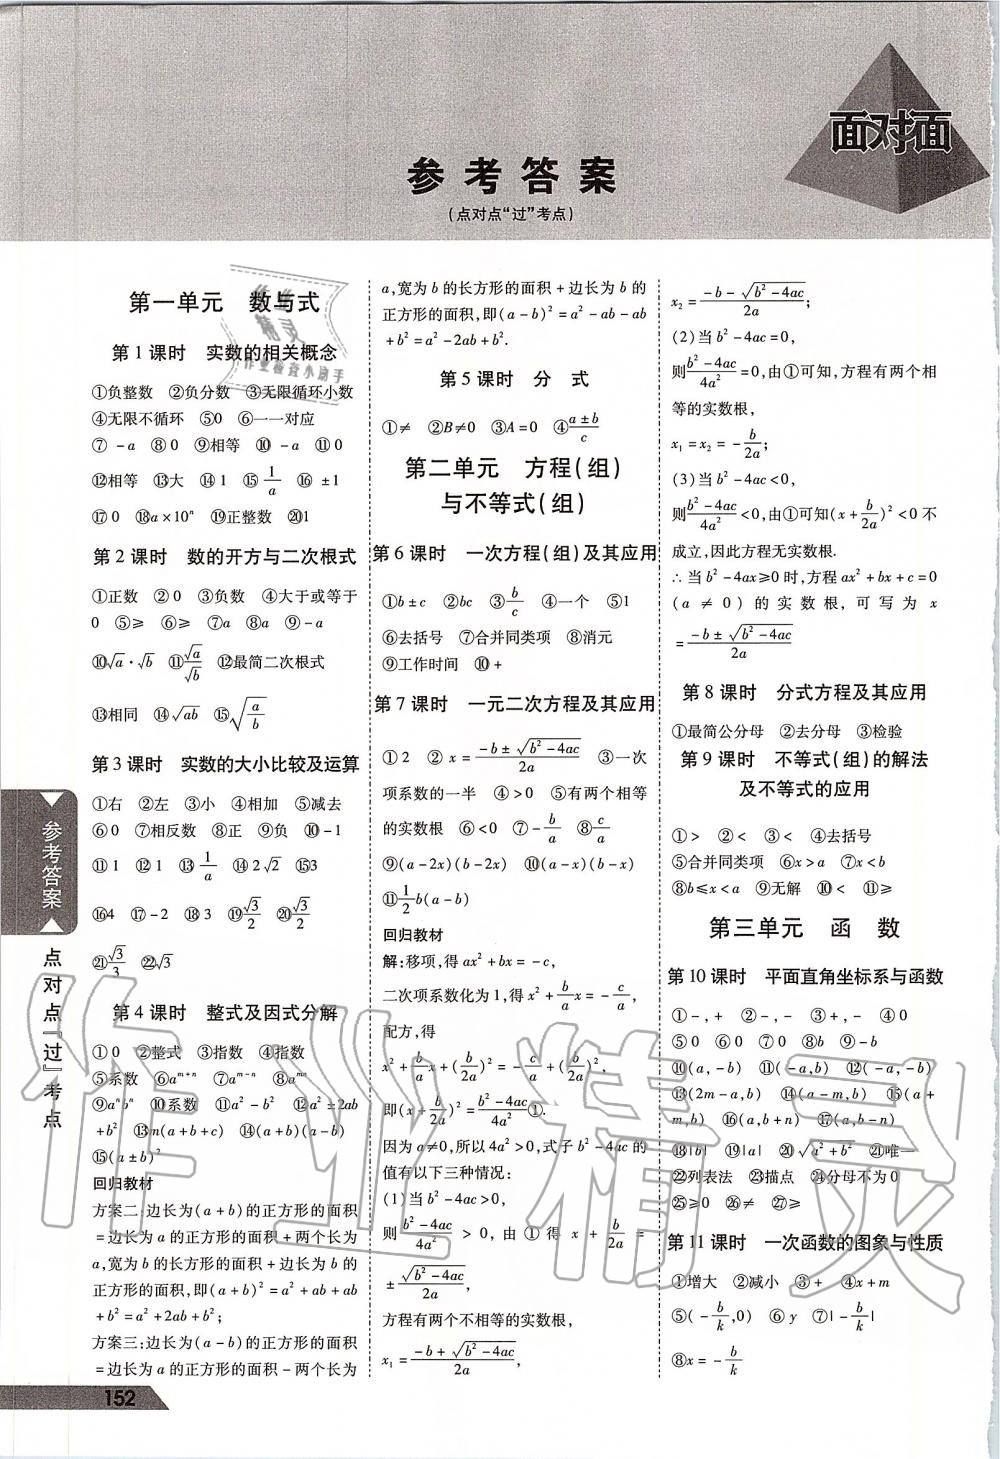 面对面
参考答案
(点对点“过”考点)
第一单元　数与式
第1课时　实数的相关概念
①负整数　②负分数　③无限循环小数
④无限不循环　⑤0　⑥一一对应
⑦ -a　⑧ 0　⑨相等　⑩ -a　⑪1
⑫相等　⑬大　⑭ 1　⑮ 1/a　⑯ ±1
⑰ 0　⑱a×10ⁿ　⑲正整数　⑳1
第2课时　数的开方与二次根式
①正数　② 0　③负数　④大于或等于
0　⑤≥　⑥≥　⑦a　⑧a　⑨-a
⑩√a·√b　⑪√a/√b　⑫最简二次根式
⑬相同　⑭√(ab)　⑮√(a/b)
第3课时　实数的大小比较及运算
①右　②左　③小　④相加　⑤减去
⑥ 0　⑦相反数　⑧正　⑨负　⑩ -1
⑪ 1　⑫1　⑬ 1/a　⑭ 2√2　⑮3
⑯4　⑰-2　⑱ 3　⑲√3/2　⑳√3/2
㉑√3/3　㉒√3
第4课时　整式及因式分解
① 0　②整式　③指数　④指数
⑤系数　⑥aᵐ⁺ⁿ　⑦aᵐ⁻ⁿ　⑧aᵐⁿ
⑨aⁿbⁿ　⑩系数　⑪a²-b²　⑫a²±2ab
+b²　⑬m(a+b+c)　⑭(a+b)(a-b)
⑮(a±b)²
回归教材
方案二:边长为(a+b)的正方形的面积
=边长为a的正方形的面积+两个长为
a,宽为b的长方形的面积+边长为b的
正方形的面积,即(a+b)²=a²+ab+ab
+b²=a²+2ab+b²;
方案三:边长为(a-b)的正方形的面积
=边长为a的正方形的面积-两个长为
a,宽为b的长方形的面积+边长为b的
正方形的面积,即(a-b)²=a²-ab-ab
+b²=a²-2ab+b².
第5课时　分　式
①≠　②B≠0　③A=0　④(a±b)/c
第二单元　方程(组)
与不等式(组)
第6课时　一次方程(组)及其应用
①b±c　②bc　③b/c　④一个　⑤1
⑥去括号　⑦合并同类项　⑧消元
⑨工作时间　⑩+
第7课时　一元二次方程及其应用
① 2　② x=(-b±√(b²-4ac))/2a　③一次
项系数的一半　④>0　⑤有两个相等
的实数根　⑥<0　⑦-b/a　⑧c/a
⑨(a-2x)(b-2x)　⑩(a-x)(b-x)
⑪1/2b(a-b)
回归教材
解:移项,得ax²+bx=-c,
二次项系数化为1,得x²+b/a x=-c/a,
配方,得
x²+b/a x+(b/2a)²=-c/a+(b/2a)²,
即(x+b/2a)²=(b²-4ac)/4a²①.
因为a≠0,所以4a²>0,式子b²-4ac的
值有以下三种情况:
(1)当b²-4ac>0,
则(b²-4ac)/4a²>0,由①得x+b/2a=
±√(b²-4ac)/2a,
方程有两个不相等的实数根,
x₁=(-b+√(b²-4ac))/2a,
x₂=(-b-√(b²-4ac))/2a;
(2)当b²-4ac=0,
则(b²-4ac)/4a²=0,由①可知,方程有两个相
等的实数根,
x₁=x₂=-b/2a;
(3)当b²-4ac<0,
则(b²-4ac)/4a²<0,由①可知(x+b/2a)²<0不
成立,因此方程无实数根.
∴当b²-4ax≥0时,方程ax²+bx+c=0
(a≠0)的实数根,可写为x
=(-b±√(b²-4ac))/2a
第8课时　分式方程及其应用
①最简公分母　②去分母　③检验
第9课时　不等式(组)的解法
及不等式的应用
①>　②<　③<　④去括号
⑤合并同类项　⑥x>a　⑦x<b
⑧b≤x<a　⑨无解　⑩<　⑪≥
第三单元　函　数
第10课时　平面直角坐标系与函数
①-,+　②-,-　③+,-　④0
⑤0　⑥0　⑦0　⑧b　⑨-b
⑩(a,-b)　⑪(-a,b)　⑫(-a,-b)
⑬(2m-a,b)　⑭(a-m,b)　⑮(a+
m,b)　⑯(a,b+n)　⑰(a,b-n)
⑱|b|　⑲|a|　⑳√(a²+b²)　㉑唯一
㉒列表法　㉓描点　㉔分母不为0
㉕≥0　㉖≠　㉗≥
第11课时　一次函数的图象与性质
①增大　②减小　③+　④x+m
⑤(-b/k,0)　⑥y　⑦|-b/k|
⑧x=-b/k
参考答案
点对点『过』考点
152
作业精灵
作业精灵
作业检查小助手